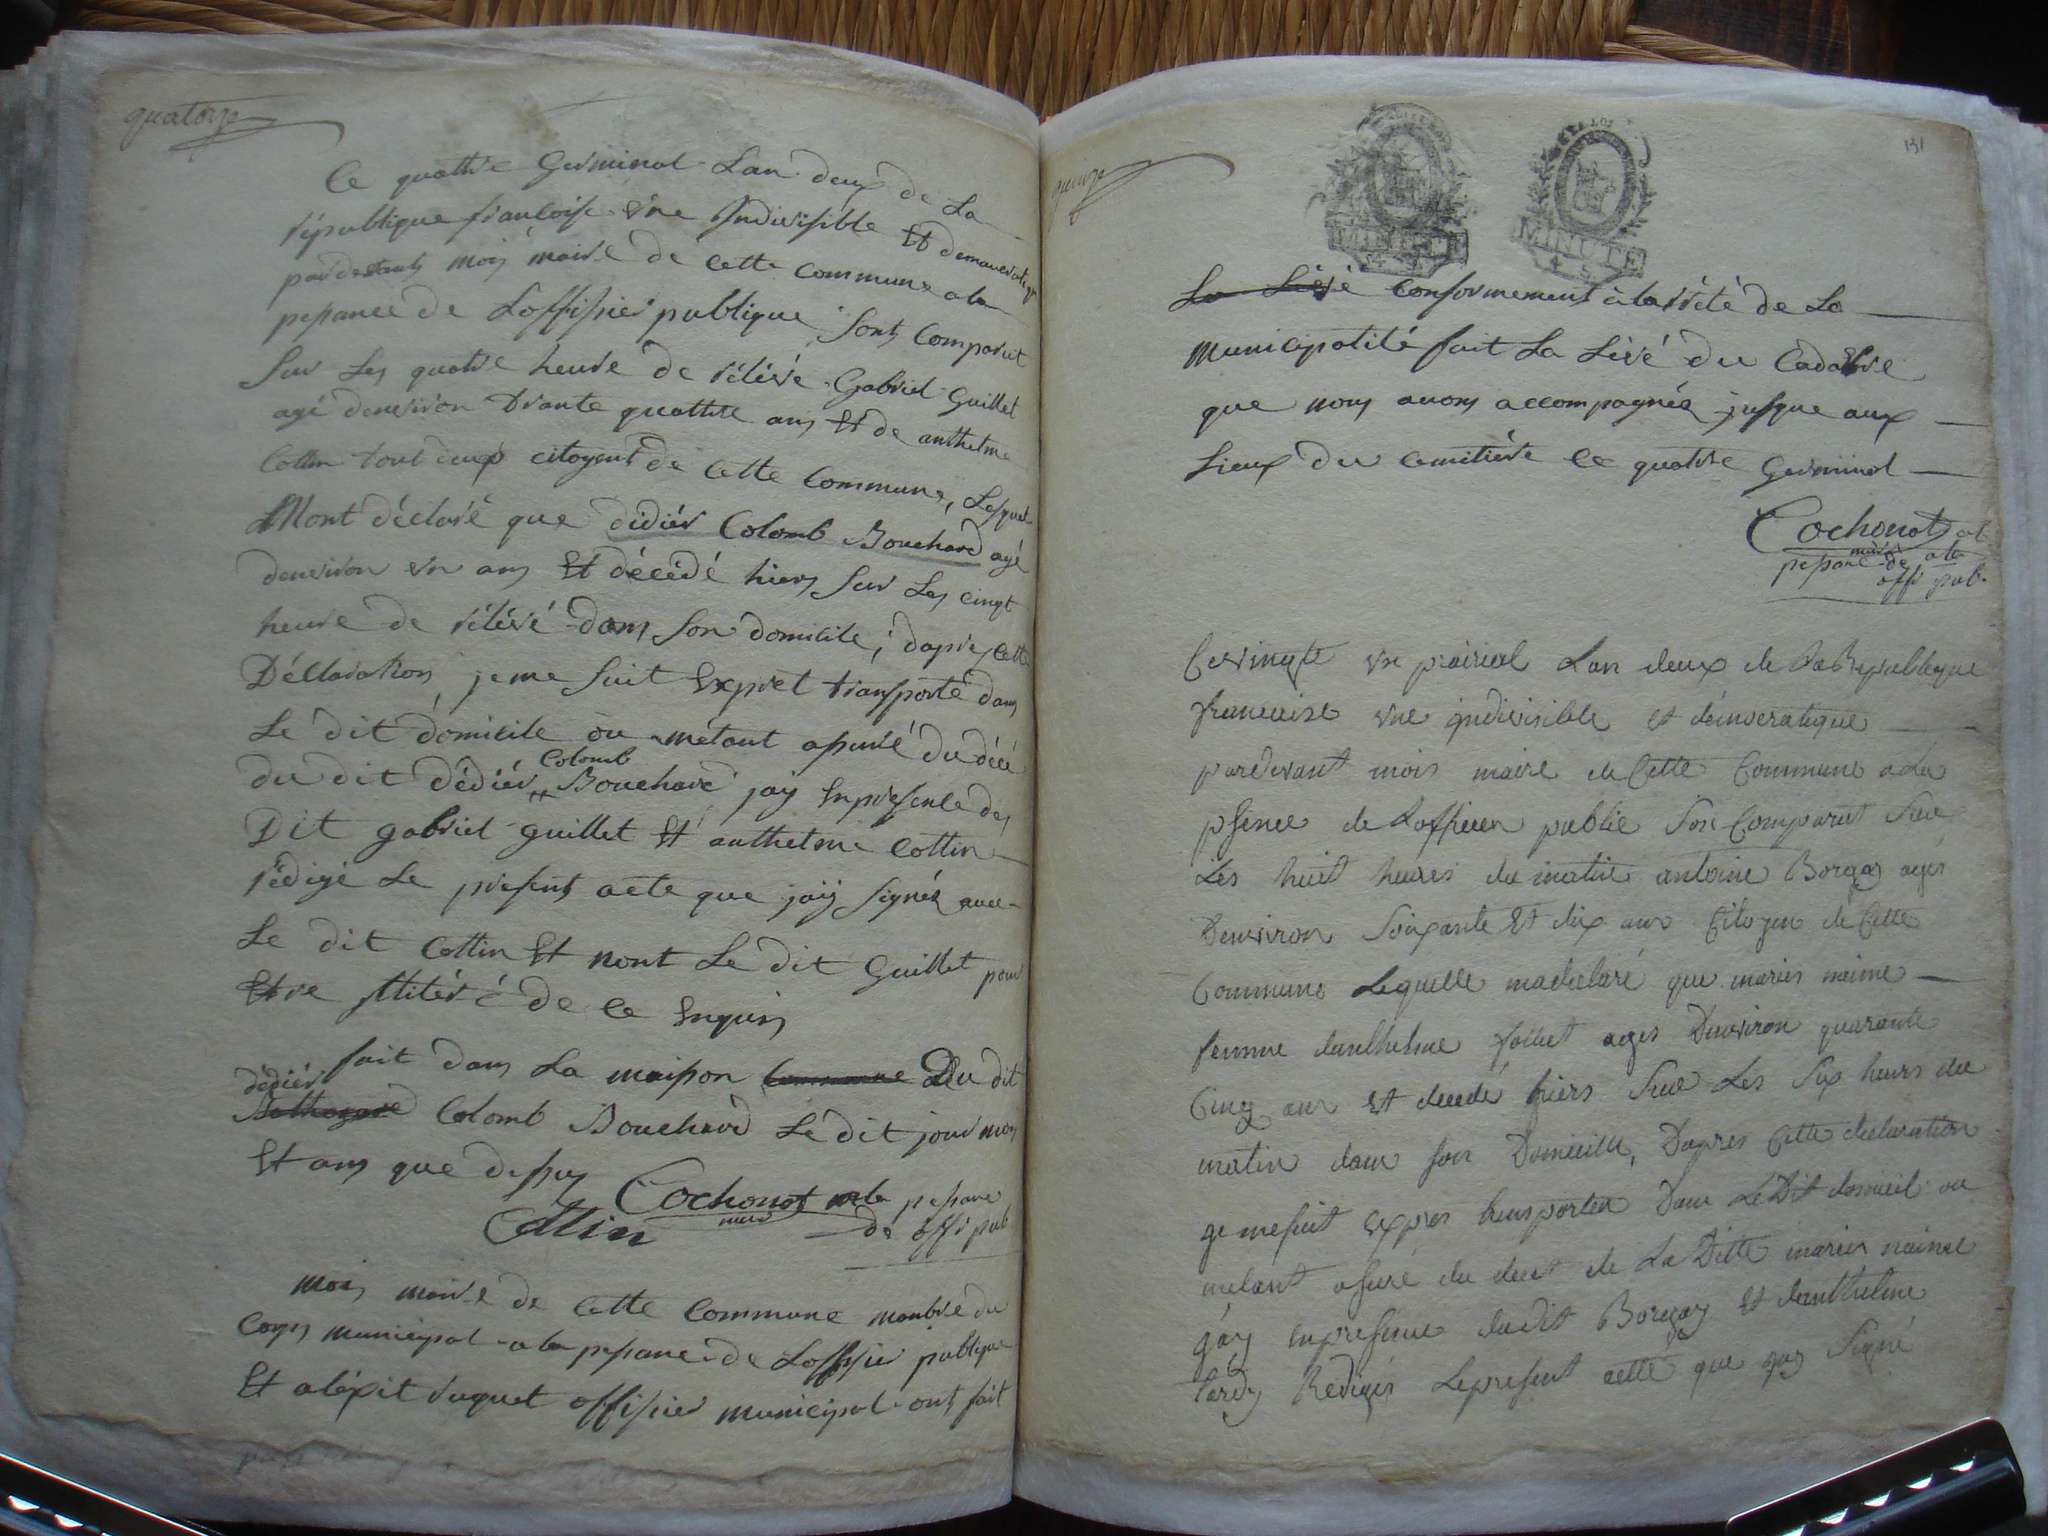 quatorze
Ce quattre Germinal Lan deux de La
république francoise une Indivisible Et democratique
pardevants mois maire de cette commune a la
pesance de Loffisier publique Sonts Comparut
Sur Les quatre heure de rélévé Gabriel Guillet
agé denviron trante quattre ans Et de anthelme
Cottin tout deux citoyent de cette Commune, Lesquel
Mont déclaré que didiér Colomb Bouchard agé
denviron un ans Et décédé hiers Sur Les cinqt
heure de rélévé dans Son domicile, dapres cette
Déclaration je me suit Exprêt transporté dans
Le dit domicile ou métant assuré du décé
du dit dédiér Colomb Bouchard jaÿ En presence des
Dit gabriel guillet Et anthelme Cottin
rédigé Le presents acte que jaÿ signéz avec
Le dit Cottin Et nont Le dit Guillet pour
Etre illitéré de ce Enquis
fait dans La maison commune Du dit
dédiér Colomb Bouchard Le dit jour mois
Et ans que dessus
Cochonot a la pesance
maire de offi pub
Cottin
Mois maire de cette commune manbre du
Corps municipal a la pesance de Loffisier publique
Et aléxit ruquet offisier municipal ont fait
quinze
131
MINUTE
MINUTE
La Lévé conformement a larété de La
Municipalité fait La Lévé du Cadavre
que nous avons accompagnéz jusque aux
Lieux du cemitiére ce quatre Germinal
Cochonot
maire a la
pesance de
offi pub.
Ce vingte un prairial Lan deux de La Republique
francaise une indivisible et démocratique
pardevant mois maire de Cette Commune a La
psence de Lofficier public Son Comparut Sur
Les huit heures du matin antoine Borgey agés
Denviron Soixante Et dix ans Citoyen de Cette
Commune Lequelle ma déclaré que maries
femme danthelme agés Denviron quarante
Cinq ans Et décédé hiers Sur Les Six heurs du
matin dans Son Domicille, Dapres Cette déclaration
je me suit Expres transporter Dans Le Dit domicil ou
metant assuré du decet de La Ditte maries
jay En presence dudit Borgey Et danthelme
tardy Redigés Le present acte que jay Signé